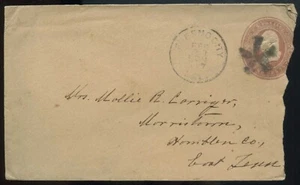 Mrs. Mollie B. Carriger,
Morristown,
Hamblen Co,
East Tenn